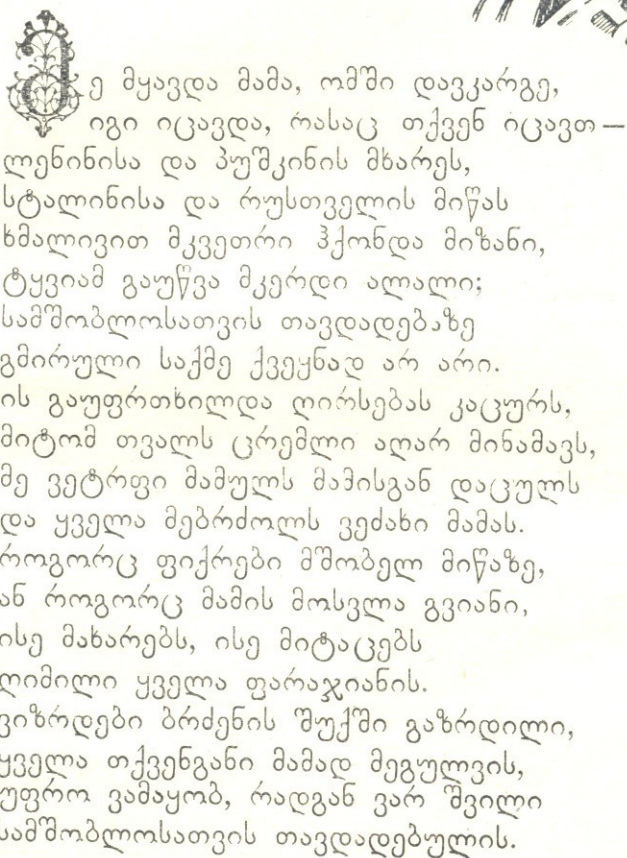 მე მყავდა მამა, ომში დავკარგე,
იგი იცავდა, რასაც თქვენ იცავთ —
ლენინისა და პუშკინის მხარეს,
სტალინისა და რუსთველის მიწას
ხმალივით მკვეთრი ჰქონდა მიზანი,
ტყვიამ გაუწვა მკერდი ალალი;
სამშობლოსათვის თავდადებაზე
გმირული საქმე ქვეყნად არ არი.
ის გაუფრთხილდა ღირსებას კაცურს,
მიტომ თვალს ცრემლი აღარ მინამავს,
მე ვეტრფი მამულს მამისგან დაცულს
და ყველა მებრძოლს ვეძახი მამას.
როგორც ფიქრები მშობელ მიწაზე,
ან როგორც მამის მოსვლა გვიანი,
ისე მახარებს, ისე მიტაცებს
ღიმილი ყველა ფარაჯიანის.
ვიზრდები ბრძენის შუქში გაზრდილი,
ყველა თქვენგანი მამად მეგულვის,
უფრო ვამაყობ, რადგან ვარ შვილი
სამშობლოსათვის თავდადებულის.